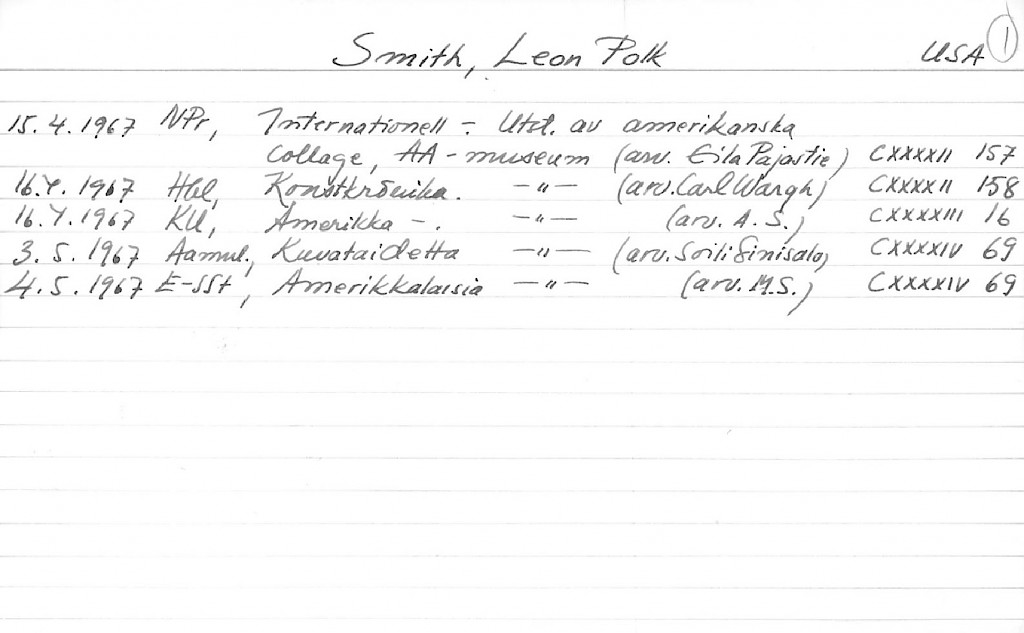 Smith, Leon Polk USA 1
15.4.1967 NPr, Internationell - Utst. av amerikanska
collage, AA-museum (arv. Eila Pajastie) CXXXXII 157
16.4.1967 Hbl, Konstkrönika. -"- (arv. Carl Wargh) CXXXXII 158
16.4.1967 KU, Amerikka -. -"- (arv. A.S.) CXXXXIII 16
3.5.1967 Aamul., Kuvataidetta -"- (arv. Soili Sinisalo) CXXXXIV 69
4.5.1967 E-SSt, Amerikkalaisia -"- (arv. M.S.) CXXXXIV 69